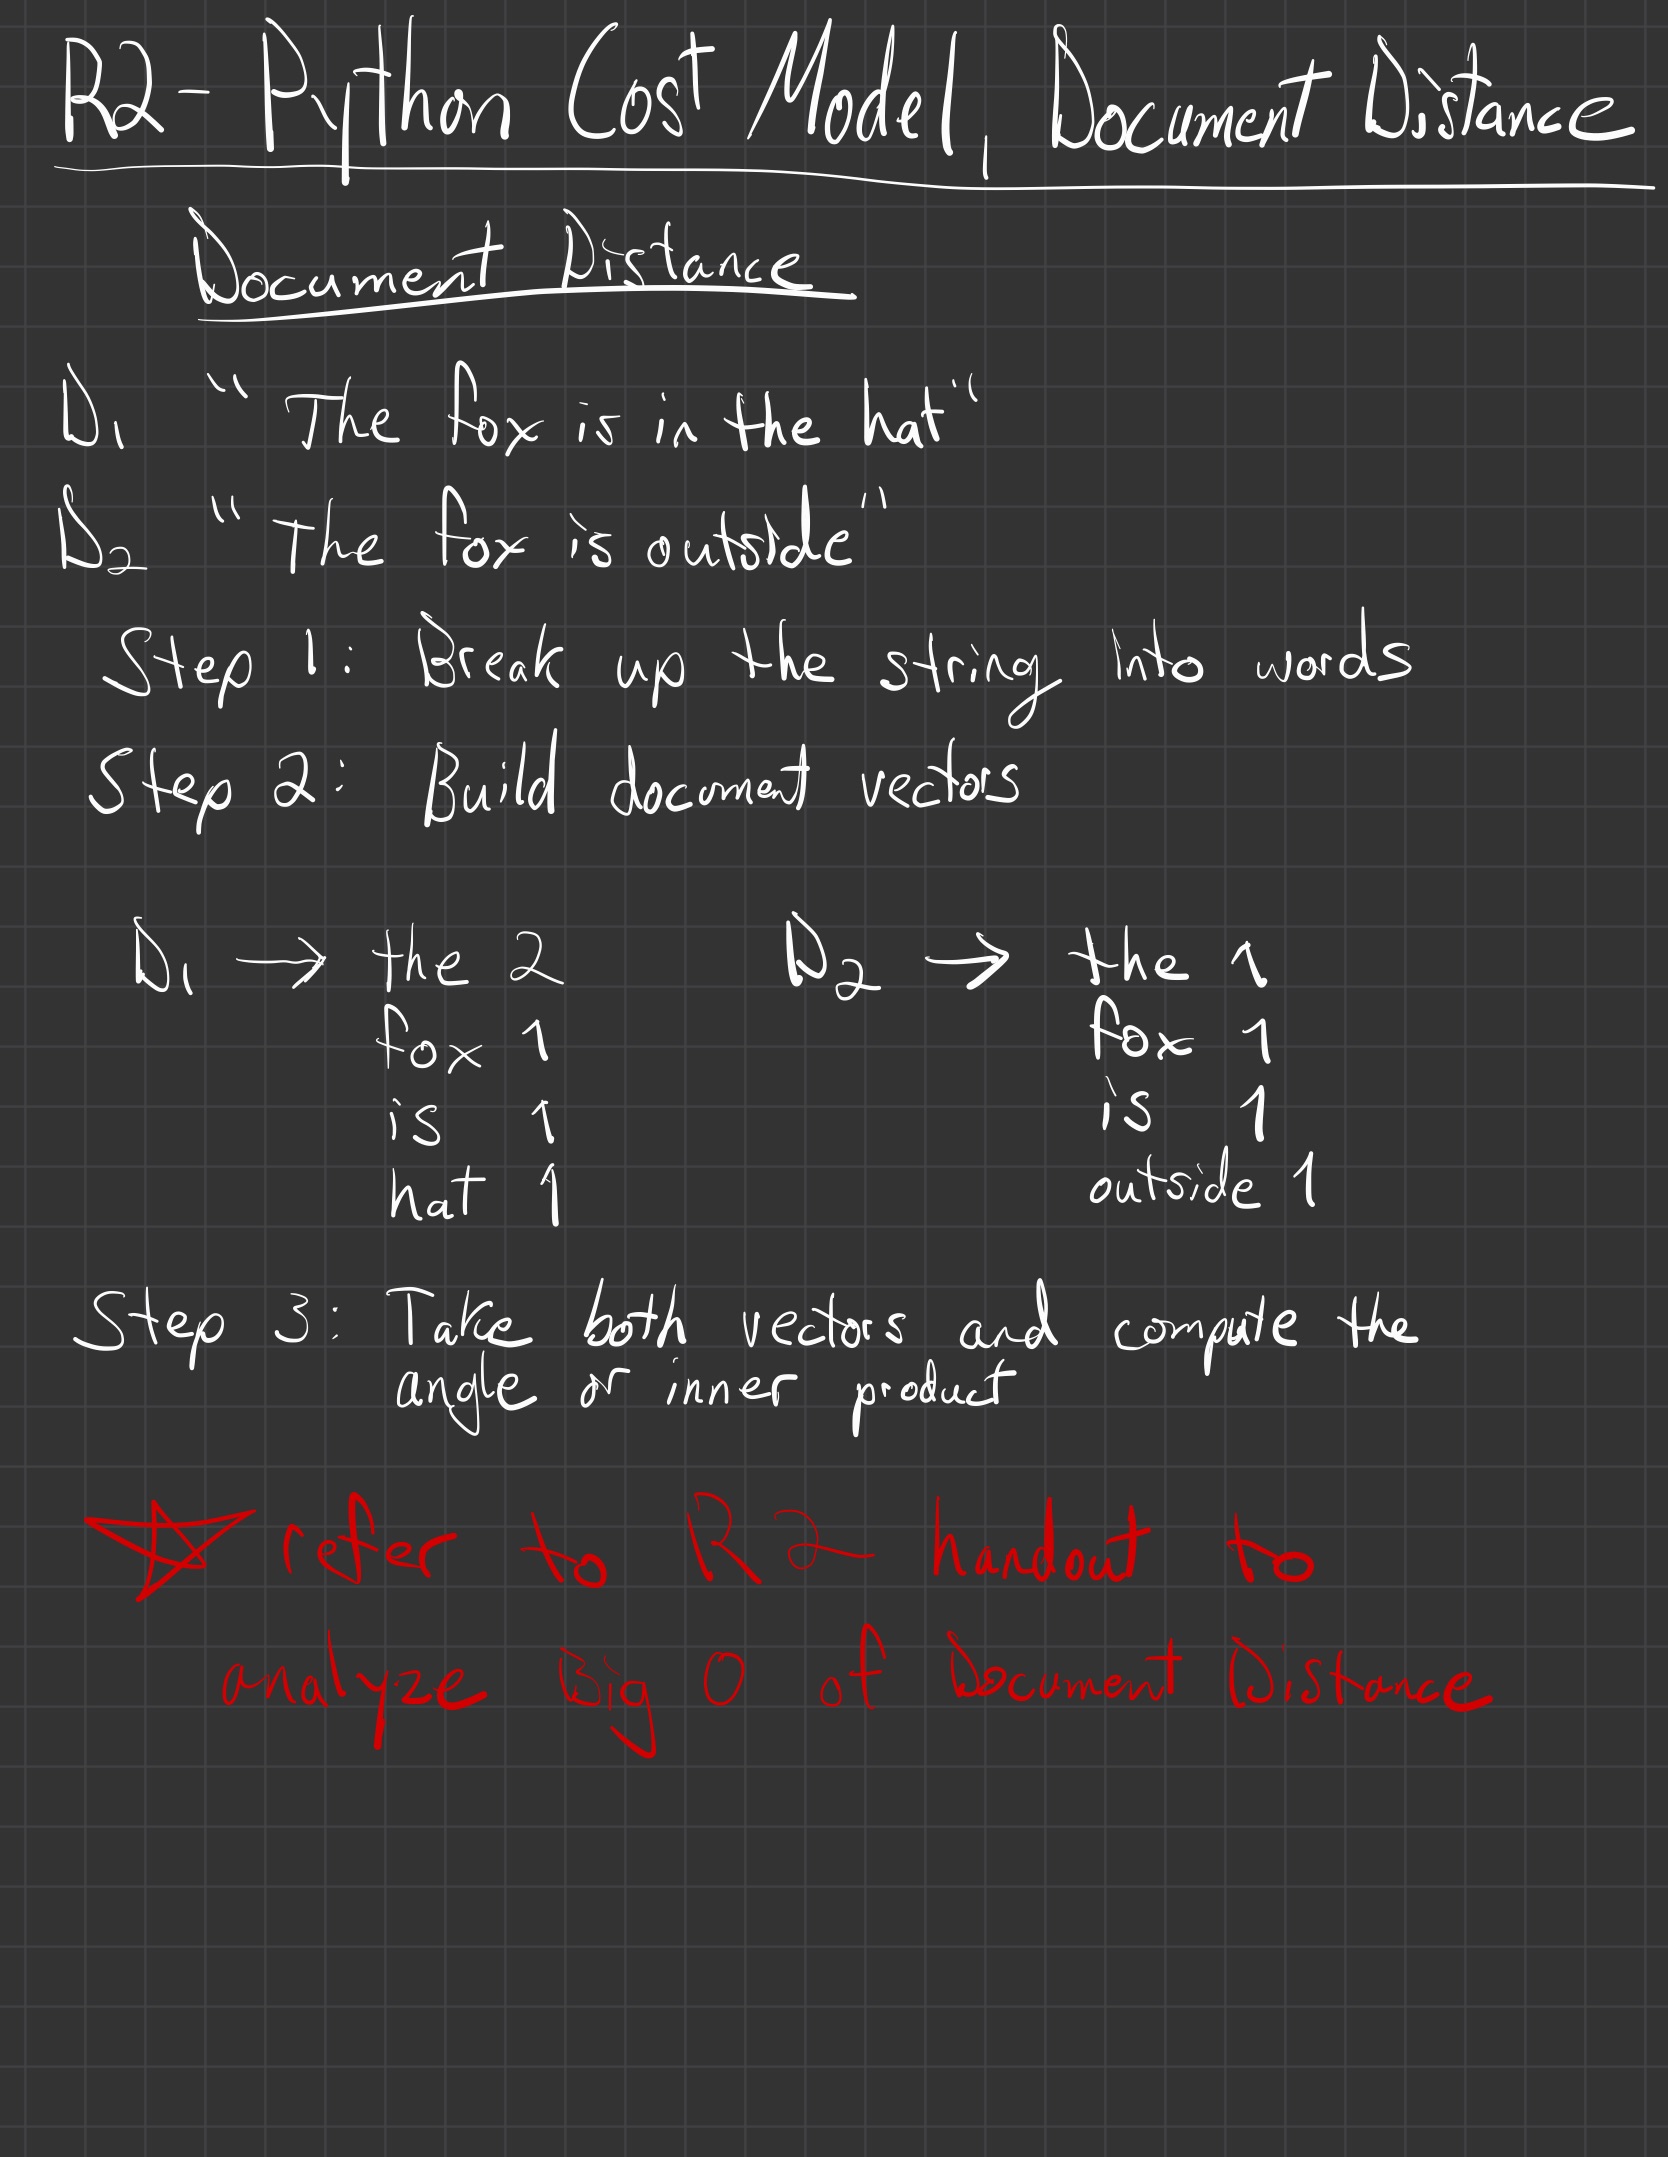 R2 - Python Cost Model, Document Distance
Document Distance
D1 "The fox is in the hat"
D2 "The fox is outside"
Step 1: Break up the string into words
Step 2: Build document vectors
D1 → the 2 D2 → the 1
fox 1 fox 1
is 1 is 1
hat 1 outside 1
Step 3: Take both vectors and compute the
angle or inner product
☆ refer to R2 handout to
analyze Big O of Document Distance